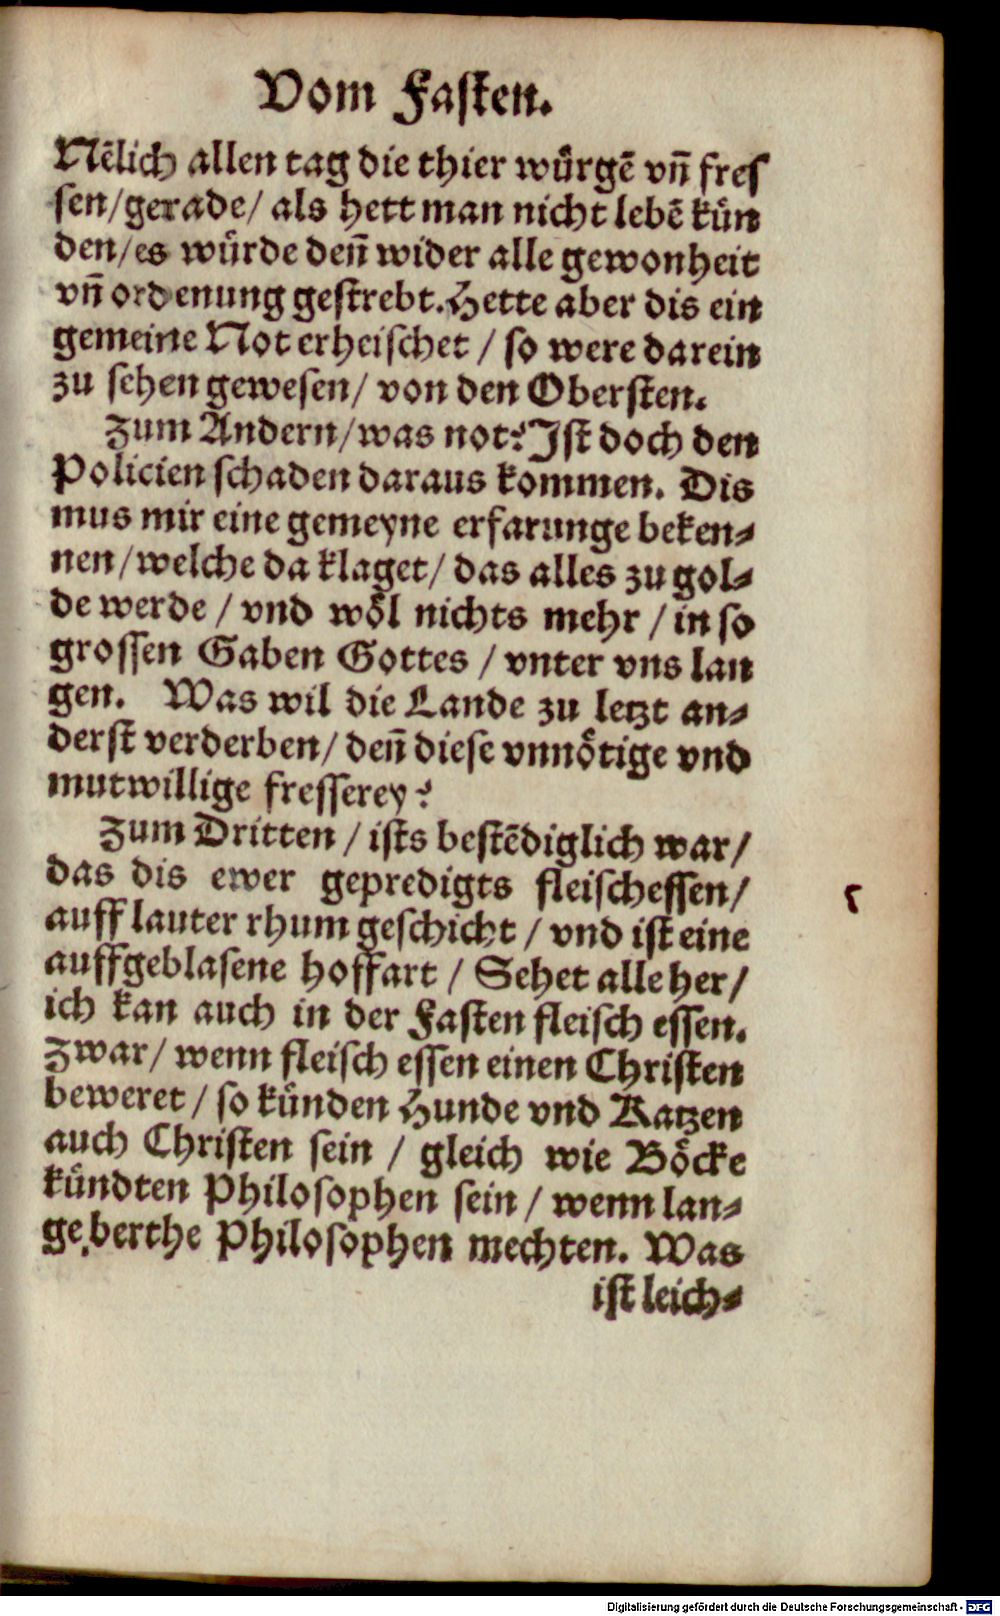 Vom Fasten.
Nẽlich allen tag die thier würgẽ vñ fres
sen/gerade/ als hett man nicht lebẽ kün
den/es würde deñ wider alle gewonheit
vñ ordenung gestrebt. Hette aber dis ein
gemeine Not erheischet / so were darein
zu sehen gewesen/ von den Obersten.
Zum Andern/was not? Ist doch den
Policien schaden daraus kommen. Dis
mus mir eine gemeyne erfarunge beken-
nen/welche da klaget/ das alles zu gol-
de werde / vnd wöl nichts mehr / in so
grossen Gaben Gottes / vnter vns lan
gen. Was wil die Lande zu letzt an-
derst verderben/ deñ diese vnnötige vnd
mutwillige fresserey?
Zum Dritten / ists bestẽdiglich war/
das dis ewer gepredigts fleischessen/
auff lauter rhum geschicht / vnd ist eine
auffgeblasene hoffart / Sehet alle her/
ich kan auch in der Fasten fleisch essen.
Zwar/ wenn fleisch essen einen Christen
beweret / so künden Hunde vnd Katzen
auch Christen sein / gleich wie Böcke
kündten Philosophen sein / wenn lan-
ge berthe Philosophen mechten. Was
ist leich-
Digitalisierung gefördert durch die Deutsche Forschungsgemeinschaft - DFG